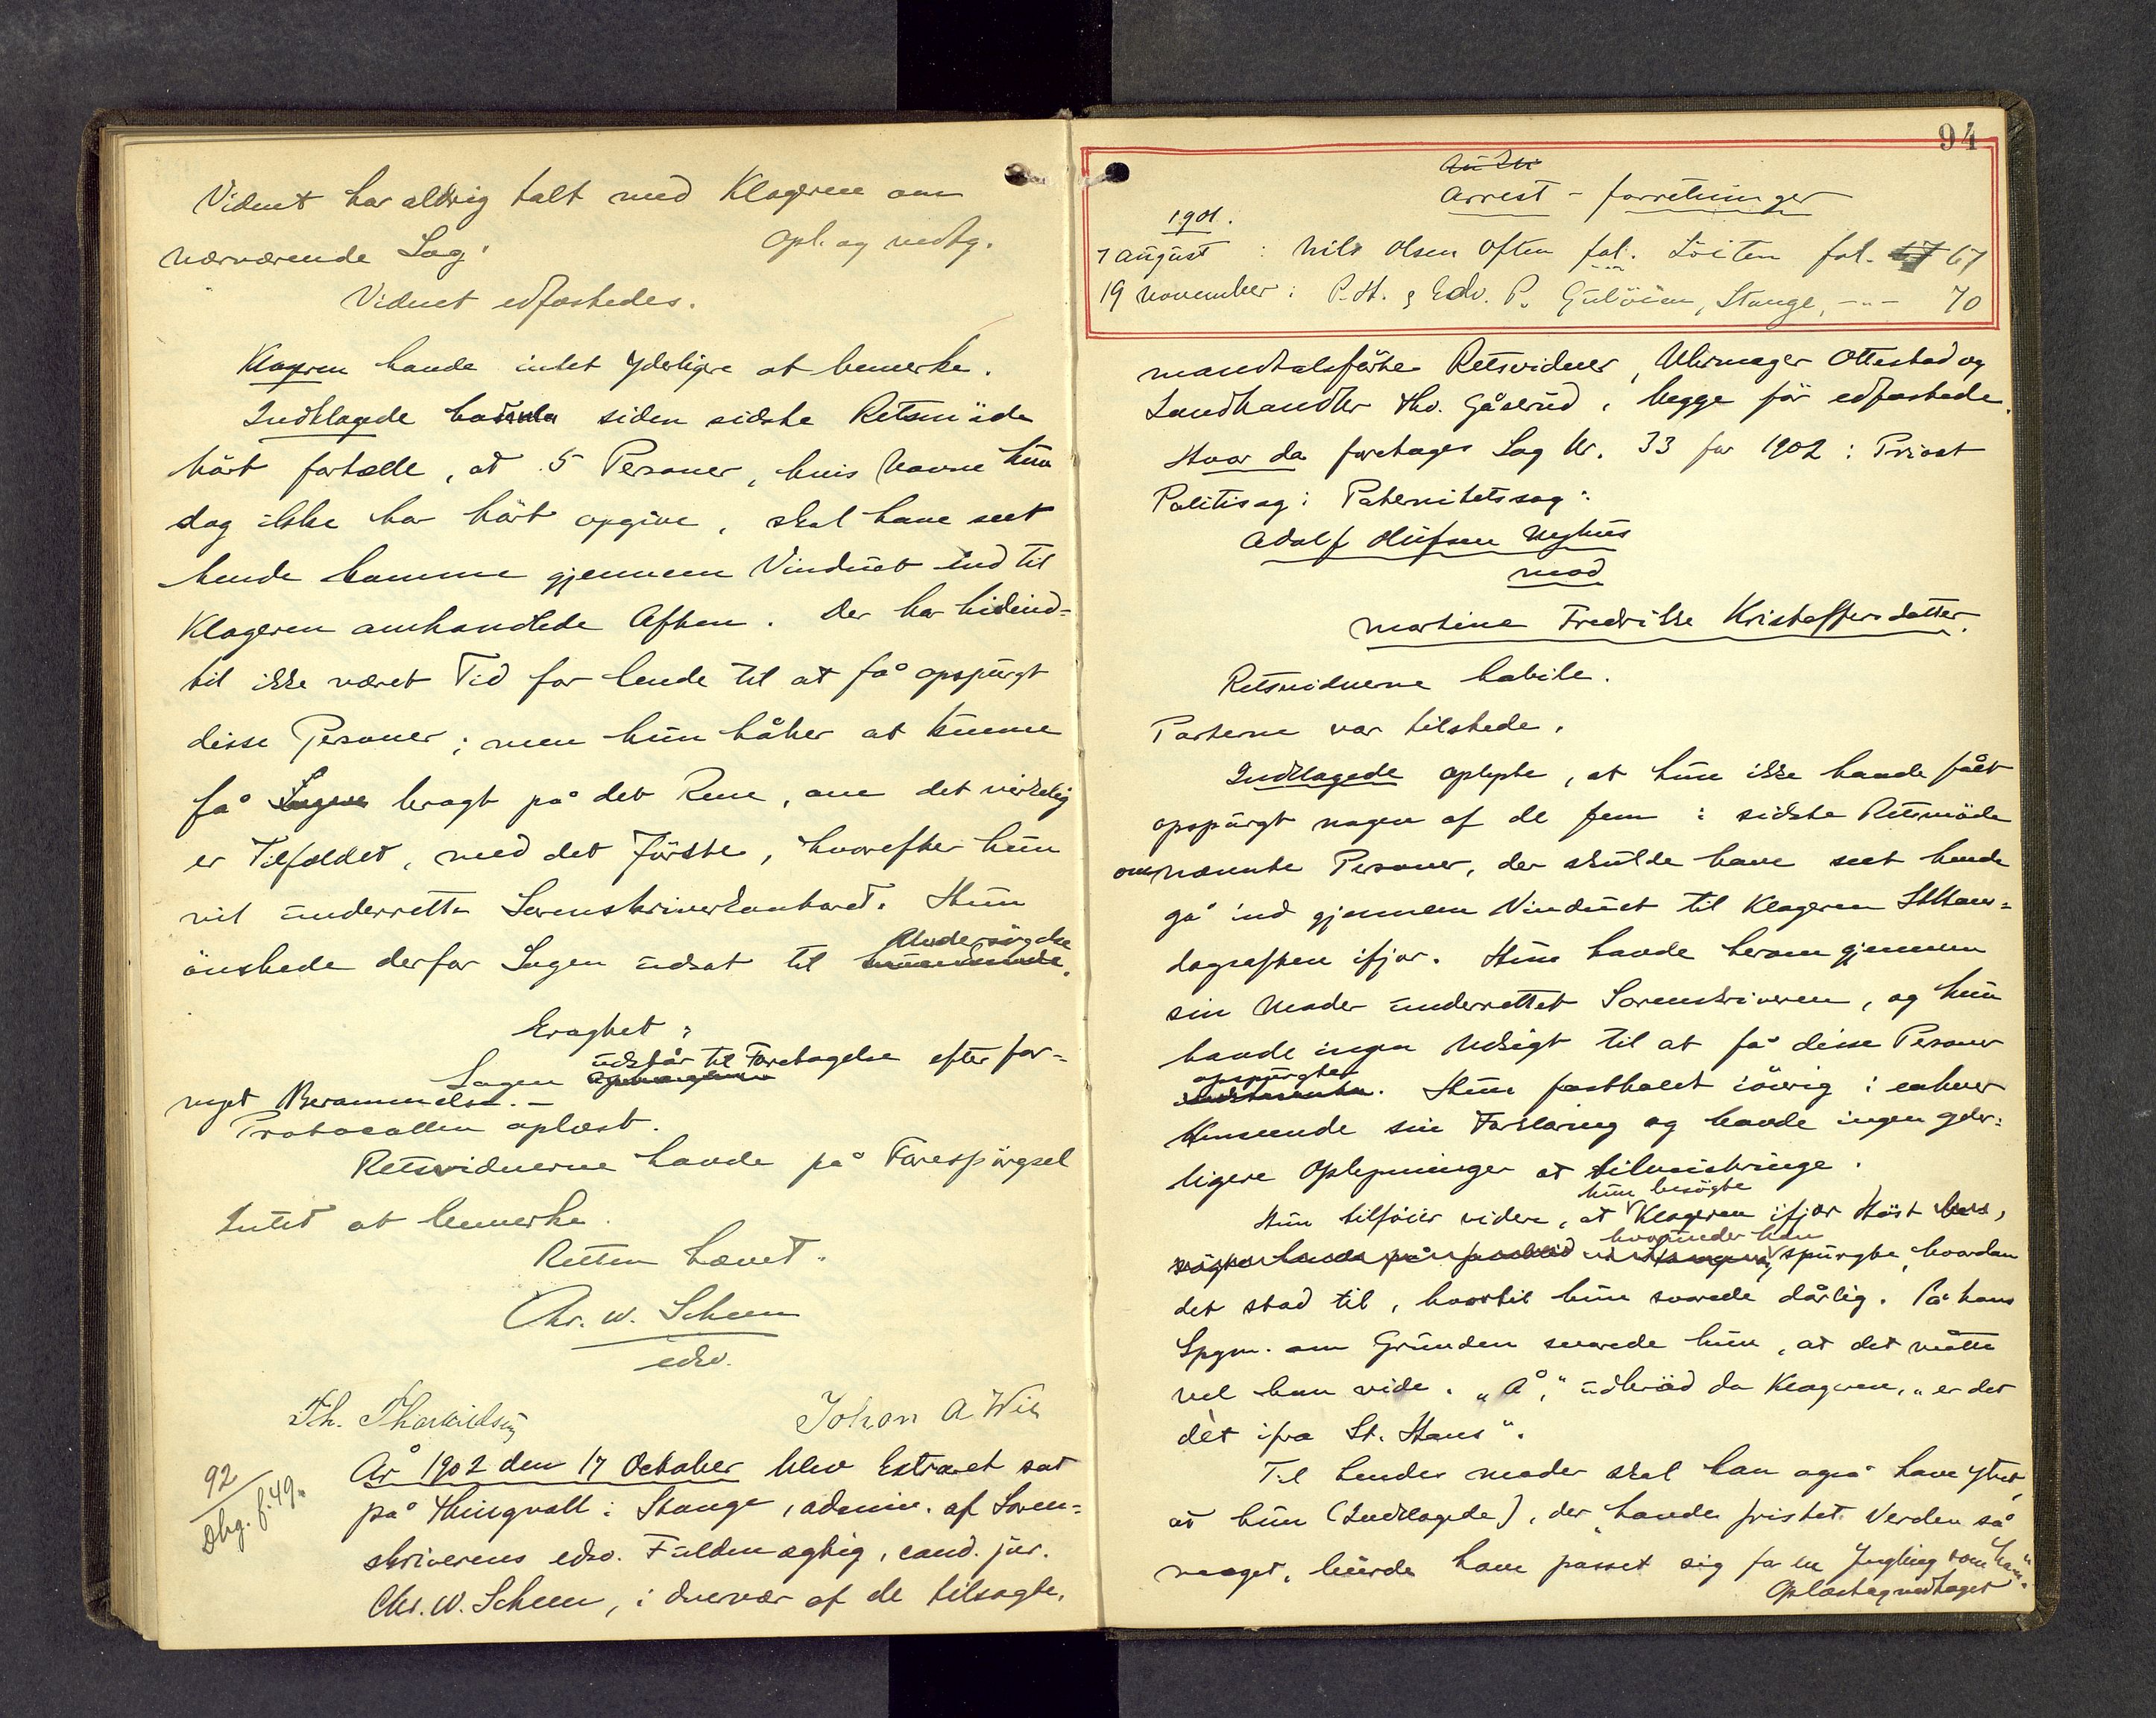 Vidnet har aldrig talt med Klageren om
nærværende Sag. Opl. og vedtg.
Vidnet edfæstedes.
Klageren havde intet yderligere at bemerke.
Indklagede havde siden sidste Retsmöde
hört fortælle, at 5 Personer, hvis Navne hun
dog ikke har hört opgive, skal have seet
hende komme gjennem Vinduet ind til
Klageren omhandlede Aften. Der har hidind-
til ikke været Tid for hende til at få opspurgt
disse Personer; men hun håber at kunne
få Sagen bragt på det Rene, om det virkelig
er Tilfældet, med det förste, hvorefter hun
vil underrette Sorenskriverkontoret. Hun
Undersögelse
önskede derfor Sagen udsat til
Eragtet:
udstår til Foretagelse efter for-
Sagen
nyet Berammelse.-
Protocollen oplæst.
Retsvidnerne havde på Forespörgsel
Intet at bemerke.
Retten hævet.
Chr. W. Scheen
edsv.
Th. Thorkildsen Johan A Wik
92
Dbg. f. 49.
År 1902 den 17 October blev Extraret sat
på Thingvold i Stange, admin. af Soren-
skriverens edsv. Fuldmægtig, cand. jur.
Chr. W. Scheen, i Overvær af de tilsagte,
94
Arrest-forretninger
1901.
7 august : Nils Olsen Often fol. Löiten fol. 67
19 November: P. H. & Edv. P. Gulöien, Stange, -"- 70
mandtalsförte Retsvidner, Uhrmager Ottestad og
Landhandler Thv. Gåserud, begge för edfæstede.
Hvor da foretages Sag Nr. 33 for 1902: Privat
Politisag: Paternitetssag:
Adolf Olufsen Nyhus
mod
Martine Fredrikke Kristoffersdatter.
Retsvidnerne habile.
Parterne var tilstede.
Indklagede oplyste, at hun ikke havde fået
opspurgt nogen af de fem i sidste Retsmöde
omnævnte Personer, der skulde have seet hende
gå ind gjennem Vinduet til Klageren StHans-
dagsaften ifjor. Hun havde herom gjennem
sin Moder underrettet Sorenskriveren, og hun
havde ingen Udsigt til at få disse Personer
opspurgtes
. Hun fastholdt iövrig i enhver
Henseende sin Forklaring og havde ingen yder-
ligere Oplysninger at tilveiebringe.
hun besögte
Hun tilföier videre, at Klageren ifjor Höst
hvorunder han
spurgte, hvordan
det stod til, hvortil hun svarede dårlig. På hans
Spgm. om Grunden svarede hun, at det måtte
vel han vide. "Å," udbröd da Klageren, "er det
dèt ifra St. Hans".
Til hendes moder skal han også have ytret,
at hun (Indklagede), der "havde fristet Verden så
meget, burde have passet sig for en Yngling som ham".
Oplæst og vedtaget